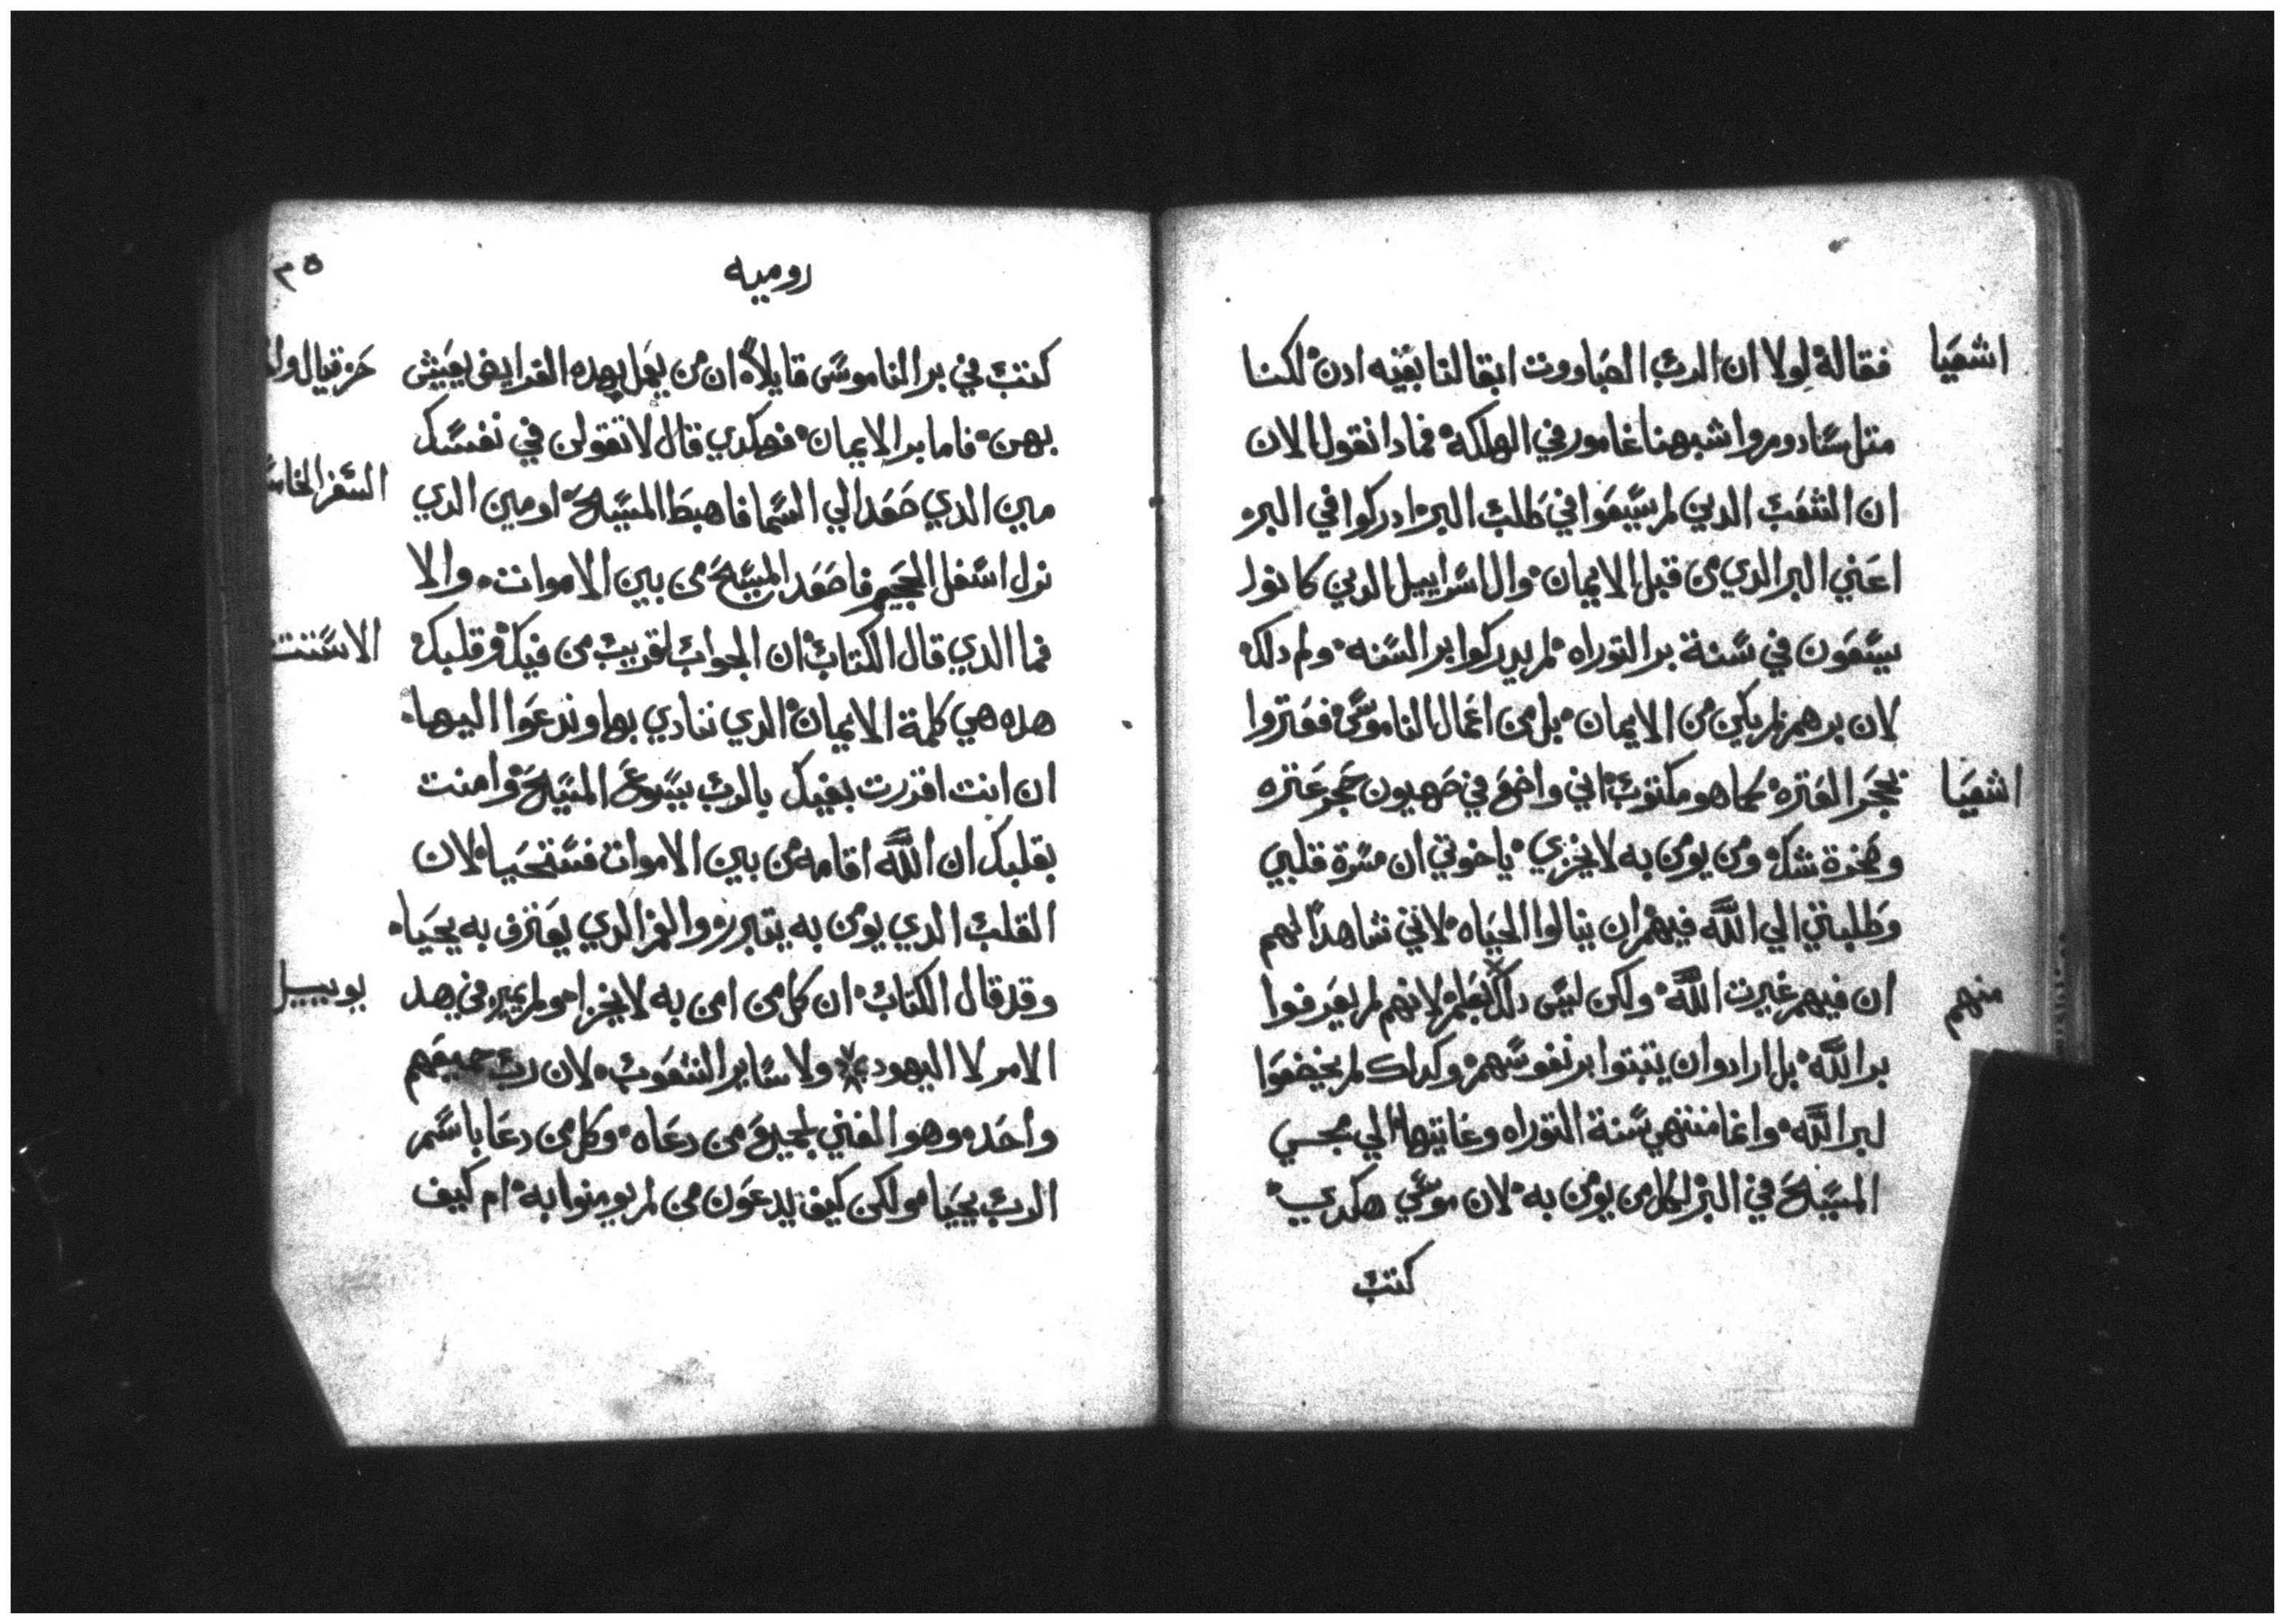 اشعيا
فقاله لولا ان الرب الصاباووت ابقا لنا بقيه ادن لكنا
متل سادوم واشبهنا غامور في الهلكه فمادا نقول الان
ان الشعب الدين لم يسعوا في طلب البر ادركوا في البر
اعني البر الدي من قبل الايمان وال اسراييل الدين كانوا
يسعون في سنة بر التوراه لم يدركوا بر السنه ولم دلك
لان برهم لم يكن من الايمان بل من اعمال الناموس فعتروا
اشعيا
بحجر العتره كما هو مكتوب اني واضع في صهيون حجر عتره
وصخرة شك ومن يومن به لا يخزي ياخوتي ان مسرة قلبي
وطلبتي الي الله فيهم ان ينالوا الحياه لانني شاهدا لهم
منهم
ان فيهم غيرت الله ولكن ليس دلك بعلم لانهم لم يعرفوا
بر الله بل ارادوا ان يتبتوا بر نفوسهم وكداك لم يخضعوا
لبر الله وانما منتهي سنة التوراه وغايتها الي مجي
المسيح في البر لكل من يومن به لان موسي هكدي
كتب
روميه
٣٥
كتب في بر الناموس قايلا ان من يعمل بهده الفرايض يعيش
حزقيال
بهن فاما بر الايمان فهكدي قال لا تقولن في نفسك
السفر الخامس
مين الدي صعد الي السما فاهبط المسيح او مين الدي
نزل اسفل الجحيم فاصعد المسيح من بين الاموات والا
فما الدي قال الكتاب ان الجواب لقريب من فيك وقلبك
الاستتنا
هده هي كلمة الايمان الدي ننادي بها وندعوا اليها
ان انت اقررت بفيك بالرب يسوع المسيح وامنت
بقلبك ان الله اقامه من بين الاموات فستحيا لان
القلب الدي يومن به يتبرر والفم الدي يعترف به يحيا
وقد قال الكتاب ان كل من امن به لا يخزا ولم يميز في هدا
يوييل
الامر لا اليهودي ولا ساير الشعوب لان رب جميعهم
واحد وهو الغني لجميع من دعاه وكل من دعا باسم
الرب يحيا ولكن كيف يدعون من لم يومنوا به ام كيف